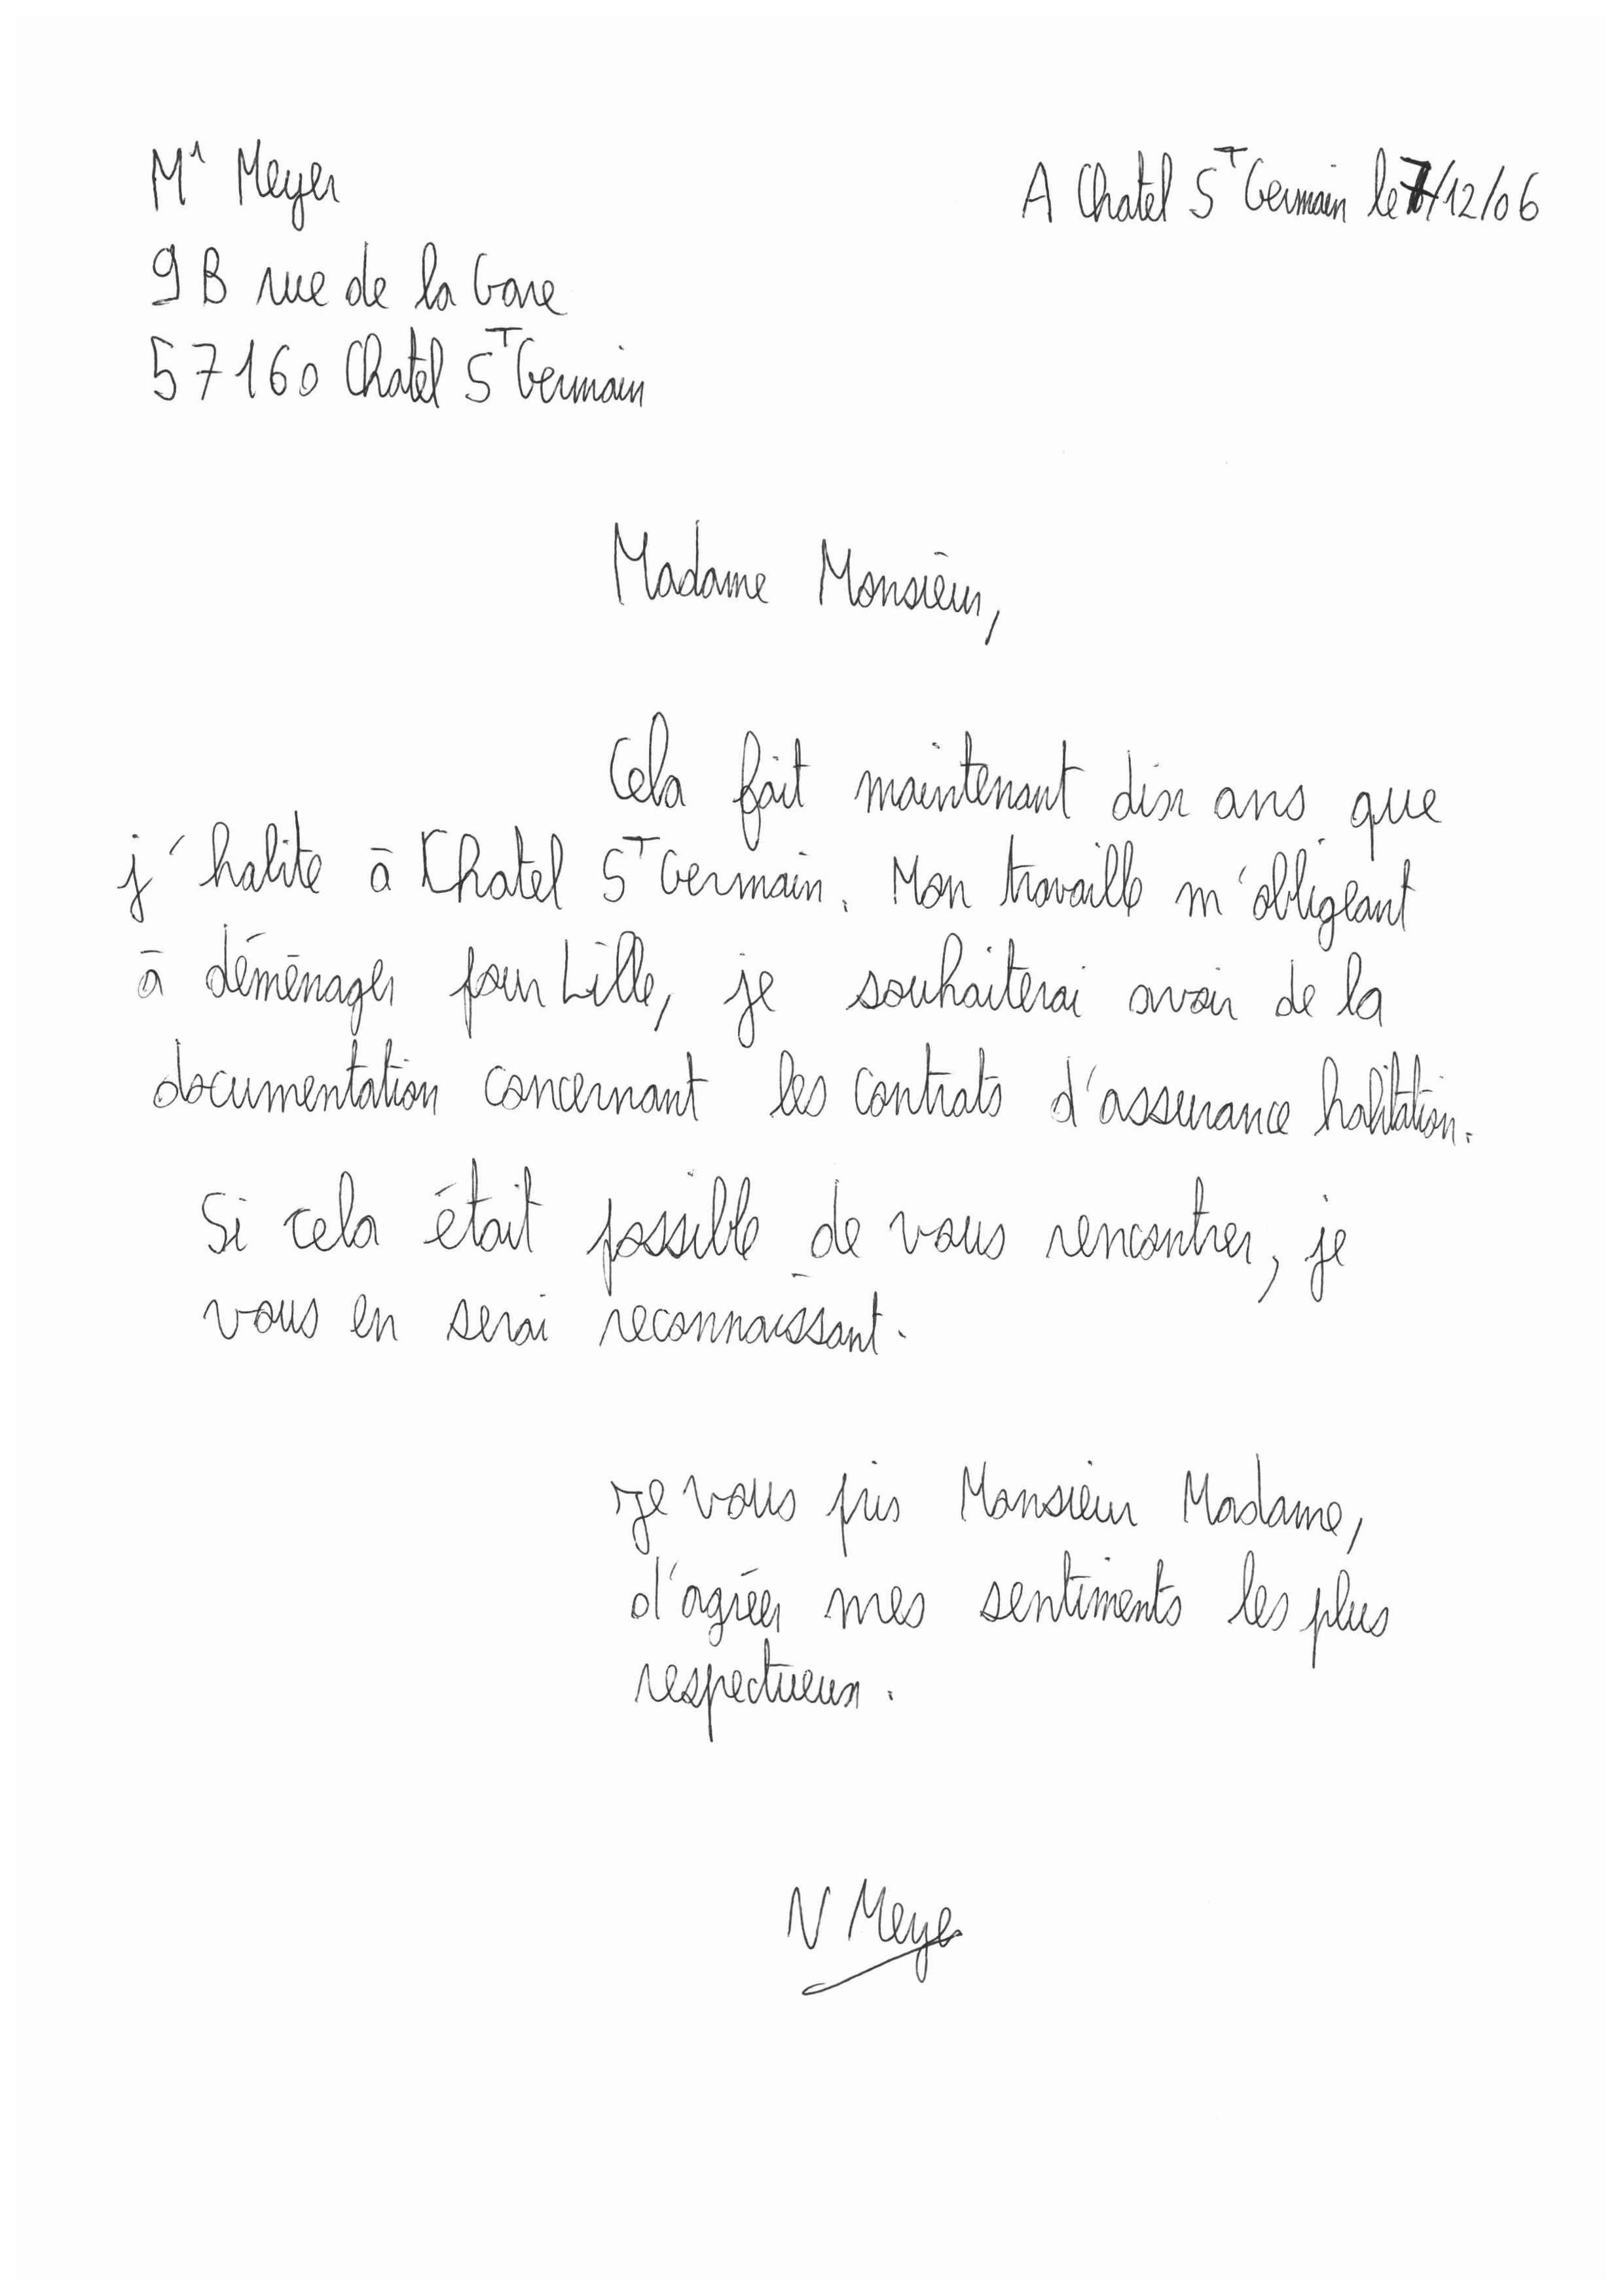 Mr Meyer
A Chatel St Germain le 7/12/06
9B rue de la Gare
57160 Chatel St Germain
Madame Monsieur,
Cela fait maintenant dix ans que
j'habite à Chatel St Germain. Mon travaille m'obligeant
à déménager pour Lille, je souhaiterai avoir de la
documentation concernant les contrats d'assurance habitation.
Si cela était possible de vous rencontrer, je
vous en serai reconnaissant.
Je vous pris Monsieur Madame,
d'agréer mes sentiments les plus
respectueux.
N Meyer